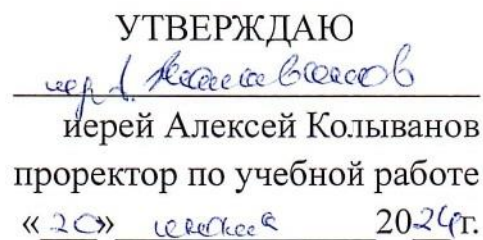 УТВЕРЖДАЮ
иерей Алексей Колыванов
проректор по учебной работе
«20» 2024г.